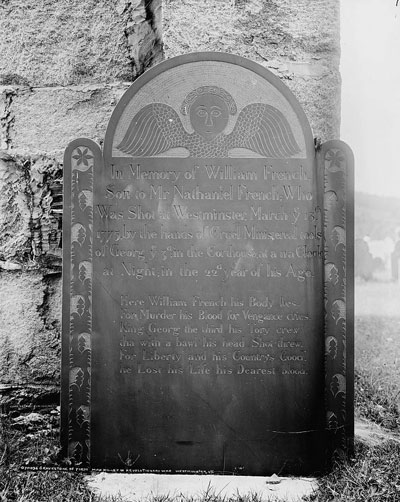 In Memory of William French.
Son to Mr Nathaniel French. Who
Was Shot at Westminster March yᵉ 13ᵗʰ
1775 by the hands of Cruel Ministereal tools
of Georg yᵉ 3ᵈ in the Corthouse at a 11 a Clock
at Night in the 22ᵈ year of his Age
Here William French his Body lies.
For Murder his Blood for Vengance cries
King Georg the third his Tory crew
tha with a bawl his head Shot threw.
For Liberty and his Countrys Good.
he Lost his Life his Dearest blood.
GRAVESTONE OF FIRST MAN KILLED IN REVOLUTIONARY WAR WESTMINSTER, VT.